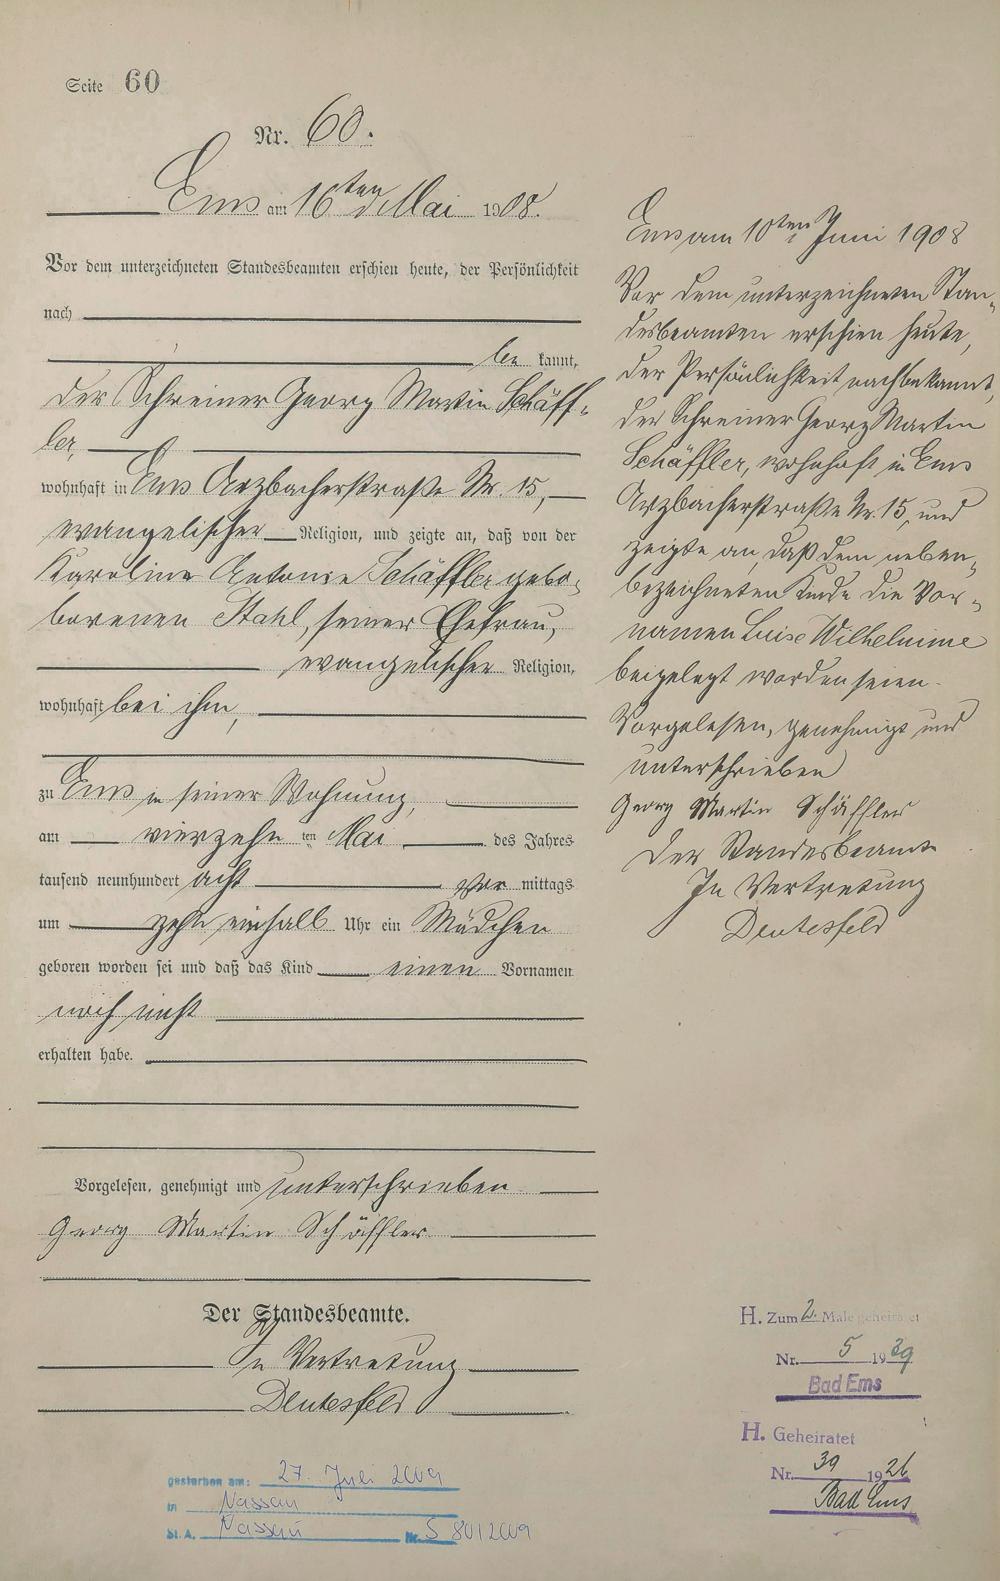 Seite 60
Nr. 60.
Ems am 16ten Mai 1908.
Vor dem unterzeichneten Standesbeamten erschien heute, der Persönlichkeit
nach
be kannt,
der Schreiner Georg Martin Schäff-
ler,
wohnhaft in Ems Arzbacherstraße Nr. 15,
evangelischer Religion, und zeigte an, daß von der
Karoline Antonie Schäffler gebo-
borenen Stahl, seiner Ehefrau,
evangelischer Religion,
wohnhaft bei ihm,
zu Ems in seiner Wohnung,
am vierzehn ten Mai des Jahres
tausend neunhundert acht Vor mittags
um zehn einhalb Uhr ein Mädchen
geboren worden sei und daß das Kind einen Vornamen
noch nicht
erhalten habe.
Vorgelesen, genehmigt und unterschrieben
Georg Martin Schäffler
Der Standesbeamte.
In Vertretung
Deutesfeld
gestorben am: 27. Juli 2009
in Nassau
St. A. Nassau Nr. S 80/2009
Ems am 10ten Juni 1908
Vor dem unterzeichneten Stan-
desbeamten erschien heute,
der Persönlichkeit nach bekannt,
der Schreiner Georg Martin
Schäffler, wohnhaft in Ems
Arzbacherstraße Nr. 15, und
zeigte an, daß dem neben-
bezeichneten Kinde die Vor-
namen Luise Wilhelmine
beigelegt worden seien.
Vorgelesen, genehmigt und
unterschrieben
Georg Martin Schäffler
Der Standesbeamte
In Vertretung
Deutesfeld
H. Zum 2. Male geheiratet
Nr. 5 1939
Bad Ems
H. Geheiratet
Nr. 39 1926
Bad Ems